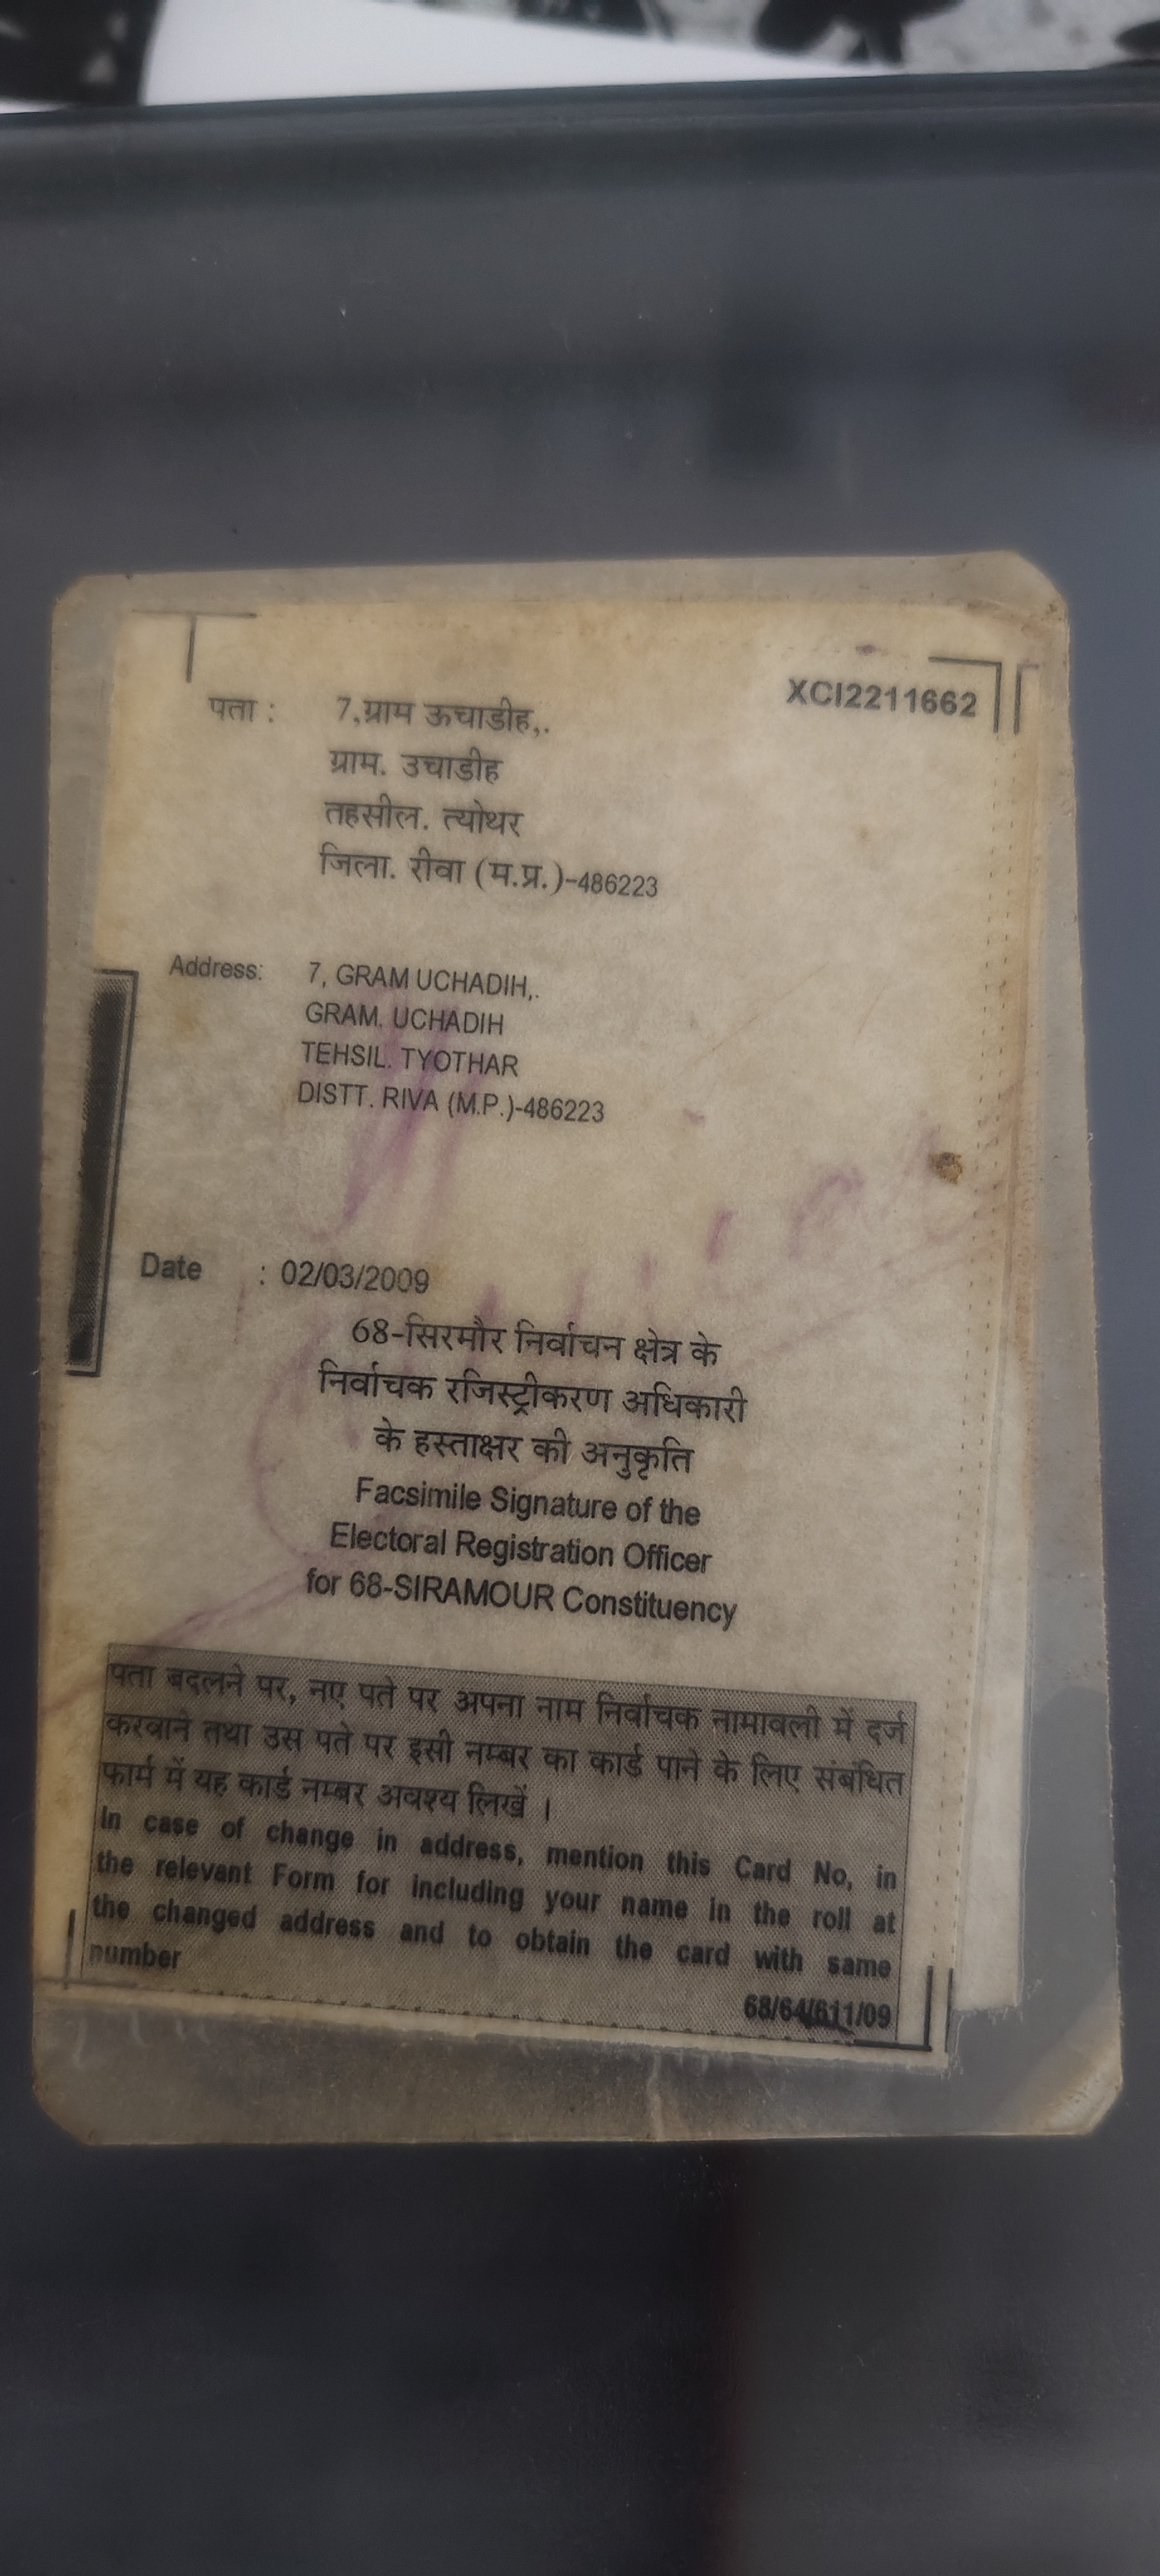 XCI2211662
पता : 7,ग्राम ऊचाडीह,.
ग्राम. उचाडीह
तहसील. त्योथर
जिला. रीवा (म.प्र.)-486223
Address: 7, GRAM UCHADIH,.
GRAM. UCHADIH
TEHSIL. TYOTHAR
DISTT. RIVA (M.P.)-486223
Date : 02/03/2009
68-सिरमौर निर्वाचन क्षेत्र के
निर्वाचक रजिस्ट्रीकरण अधिकारी
के हस्ताक्षर की अनुकृति
Facsimile Signature of the
Electoral Registration Officer
for 68-SIRAMOUR Constituency
पता बदलने पर, नए पते पर अपना नाम निर्वाचक नामावली में दर्ज
करवाने तथा उस पते पर इसी नम्बर का कार्ड पाने के लिए संबंधित
फार्म में यह कार्ड नम्बर अवश्य लिखें ।
In case of change in address, mention this Card No, in
the relevant Form for including your name in the roll at
the changed address and to obtain the card with same
number
68/64/611/09